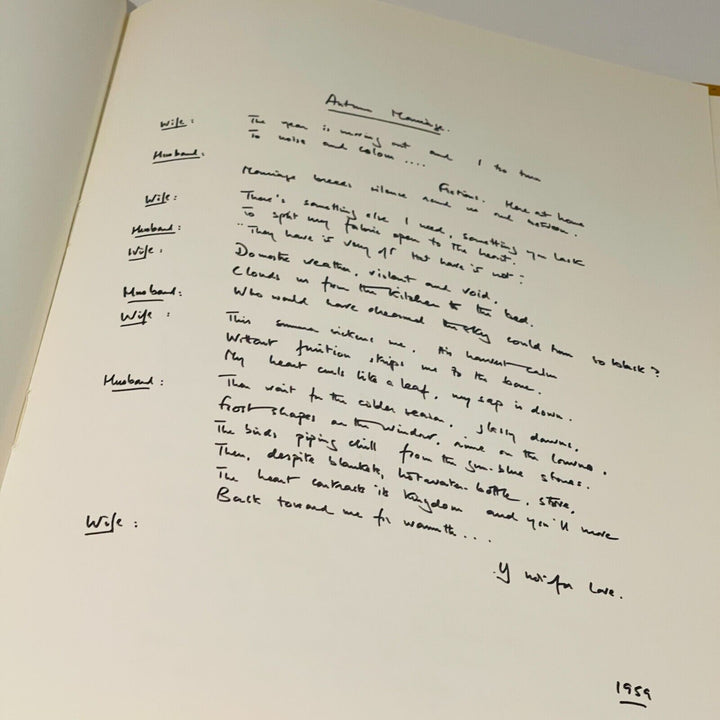 Autumn Marriage.
Wife: The year is moving out and I too turn
To noise and colour ....
Husband: Frictions. Here at home
Marriage breeds silence round us and between.
Wife: There's something else I need, something you lack
To split my fabric open to the heart.
Husband: "They have is very of but have is not:
Wife: Domestic weather, violent and void,
Clouds us from the kitchen to the bed.
Husband: Who would have dreamed the sky could turn so black?
Wife: This summer sickens me. Its harvest calm
Without fruition strips me to the bone.
My heart curls like a leaf, my sap is down.
Husband: Then wait for the colder season, glassy dawns,
Frost shapes on the window, rime on the
The birds piping chill from the gun-blue stones.
Then, despite blankets, hot water bottle, stove,
The heart contracts its kingdom and you'll move
Back toward me for warmth ...
Wife: If not for love.
1959